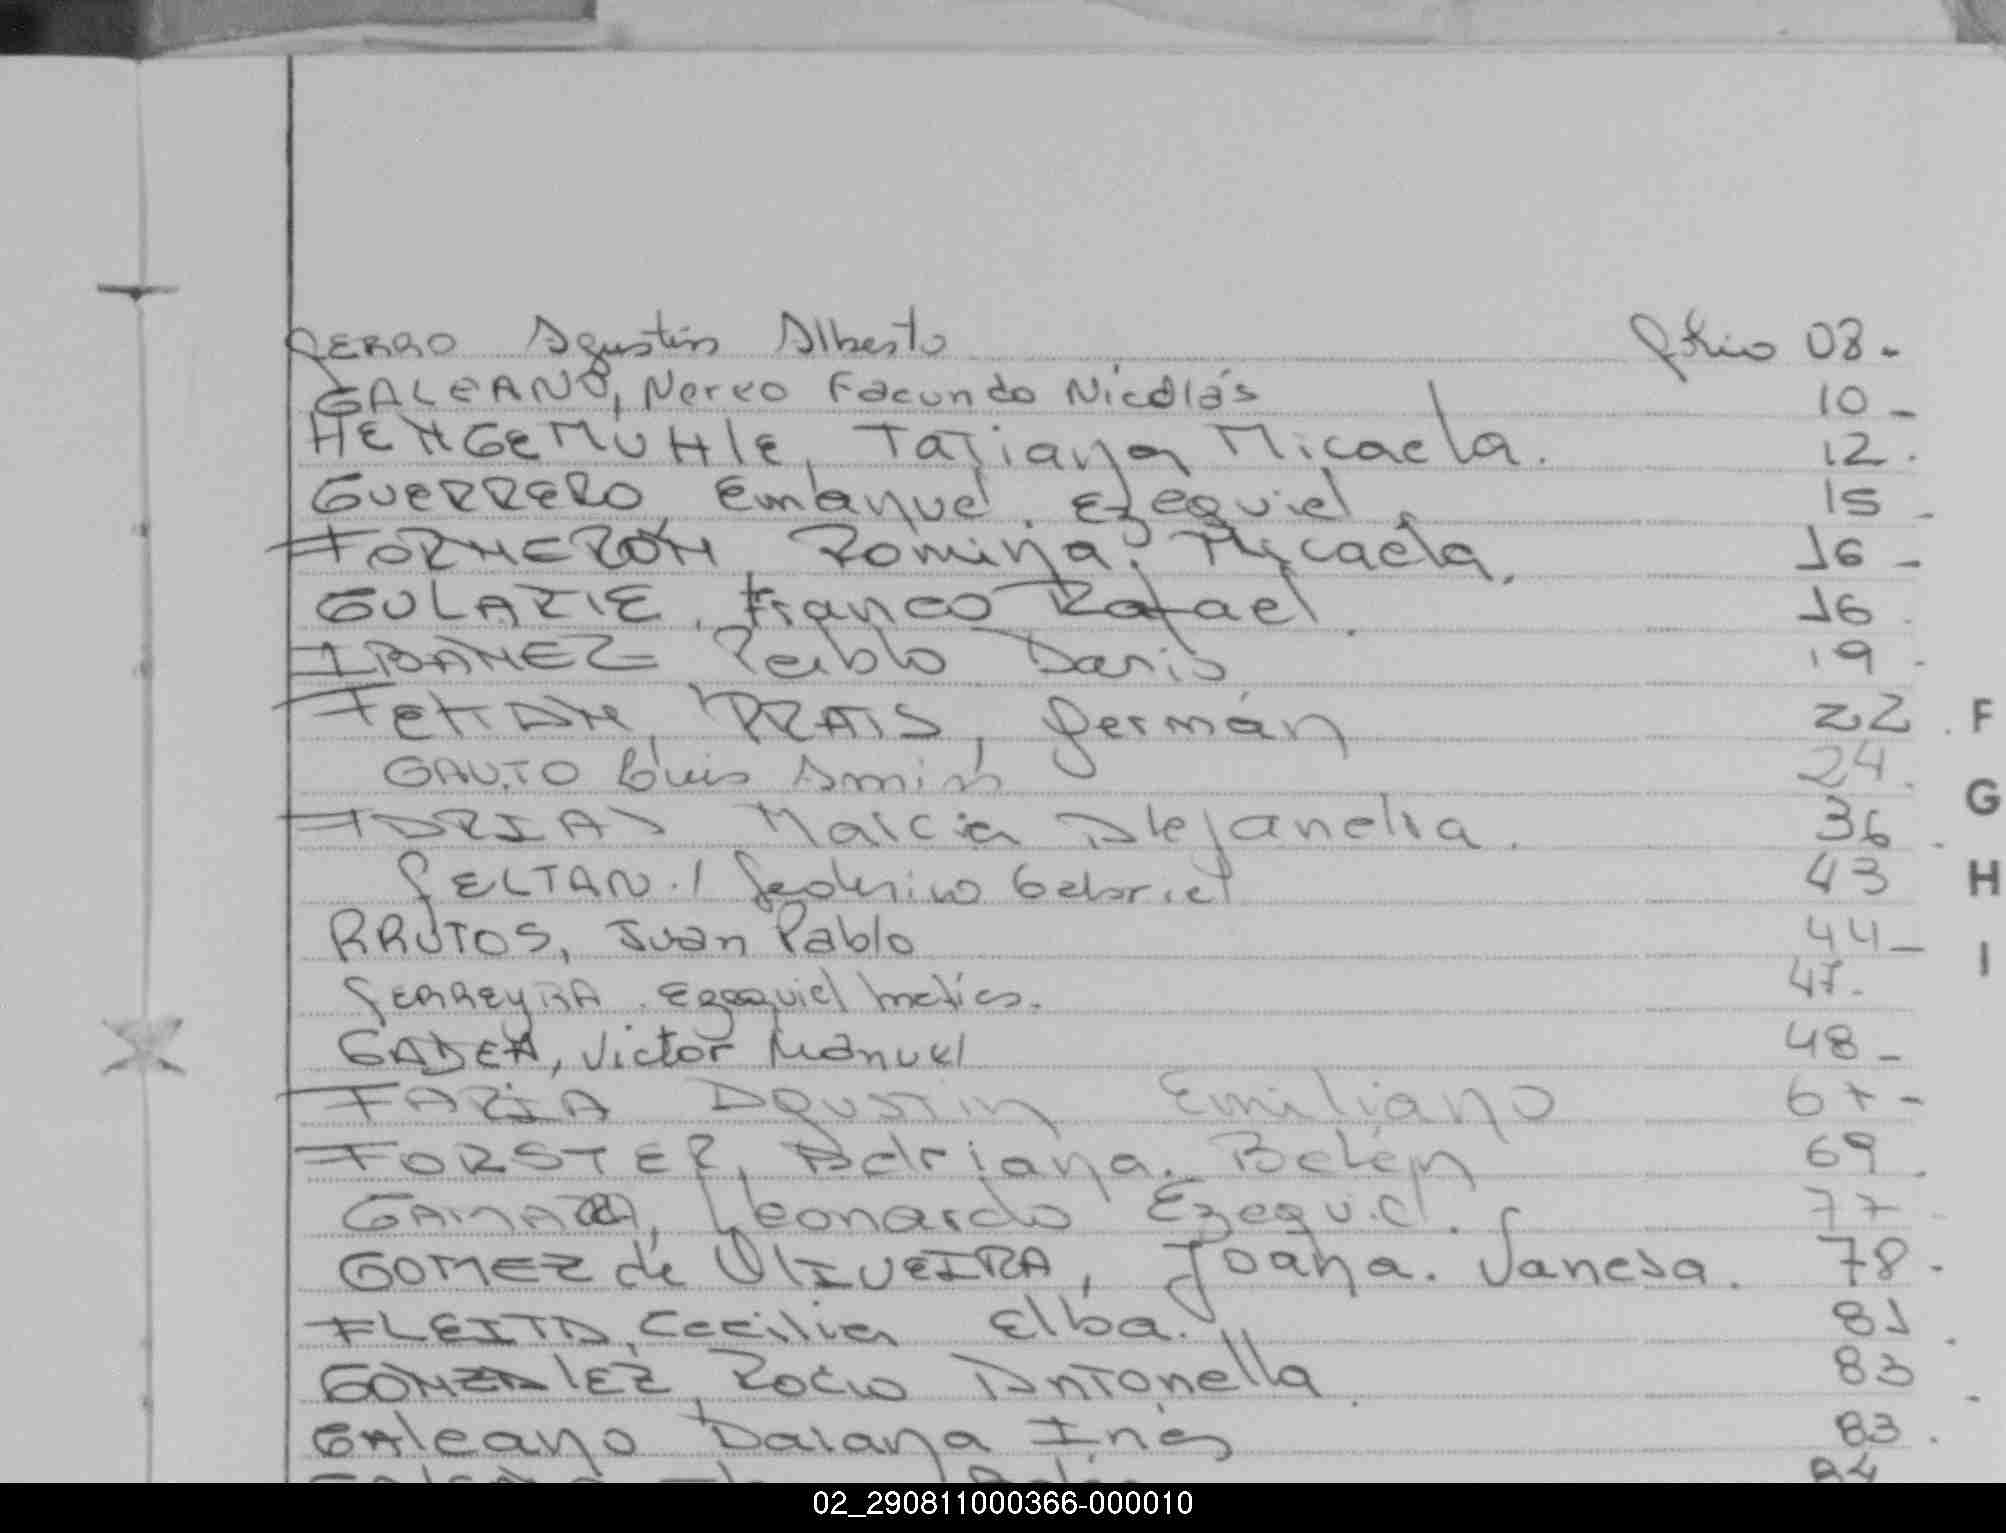 FERRO Agustín Alberto folio 08-
GALEANO, Nereo Facundo Nicolás 10-
HENGEMUHLE, Tatiana Micaela. 12.
GUERRERO, Emanuel. Ezequiel 15.
FORNERÓN, Romina. Micaela. 16-
GULARTE, Franco Rafael. 16.
IBAÑEZ Pablo Darío 19-
PRATS, Germán 22. F
GAUTO Luis 24.
Marcia Alejandra. 36. G
FELTAN. / Federico Gabriel 43 H
FRUTOS, Juan Pablo 44-
I
FERREYRA. Ezequiel Matías. 47.
GADEA, Victor Manuel 48-
FARIA Agustin Emiliano 67-
FORSTER, Adriana. Belén 69.
Leonardo Ezequiel. 77.
GOMEZ de OLIVEIRA, Joana. Vanesa. 78.
FLEITA, Cecilia Elba. 81.
GONZALEZ, Rocío Antonella. 83.
GALeano Daiana Inés 83.
84
02_290811000366-000010